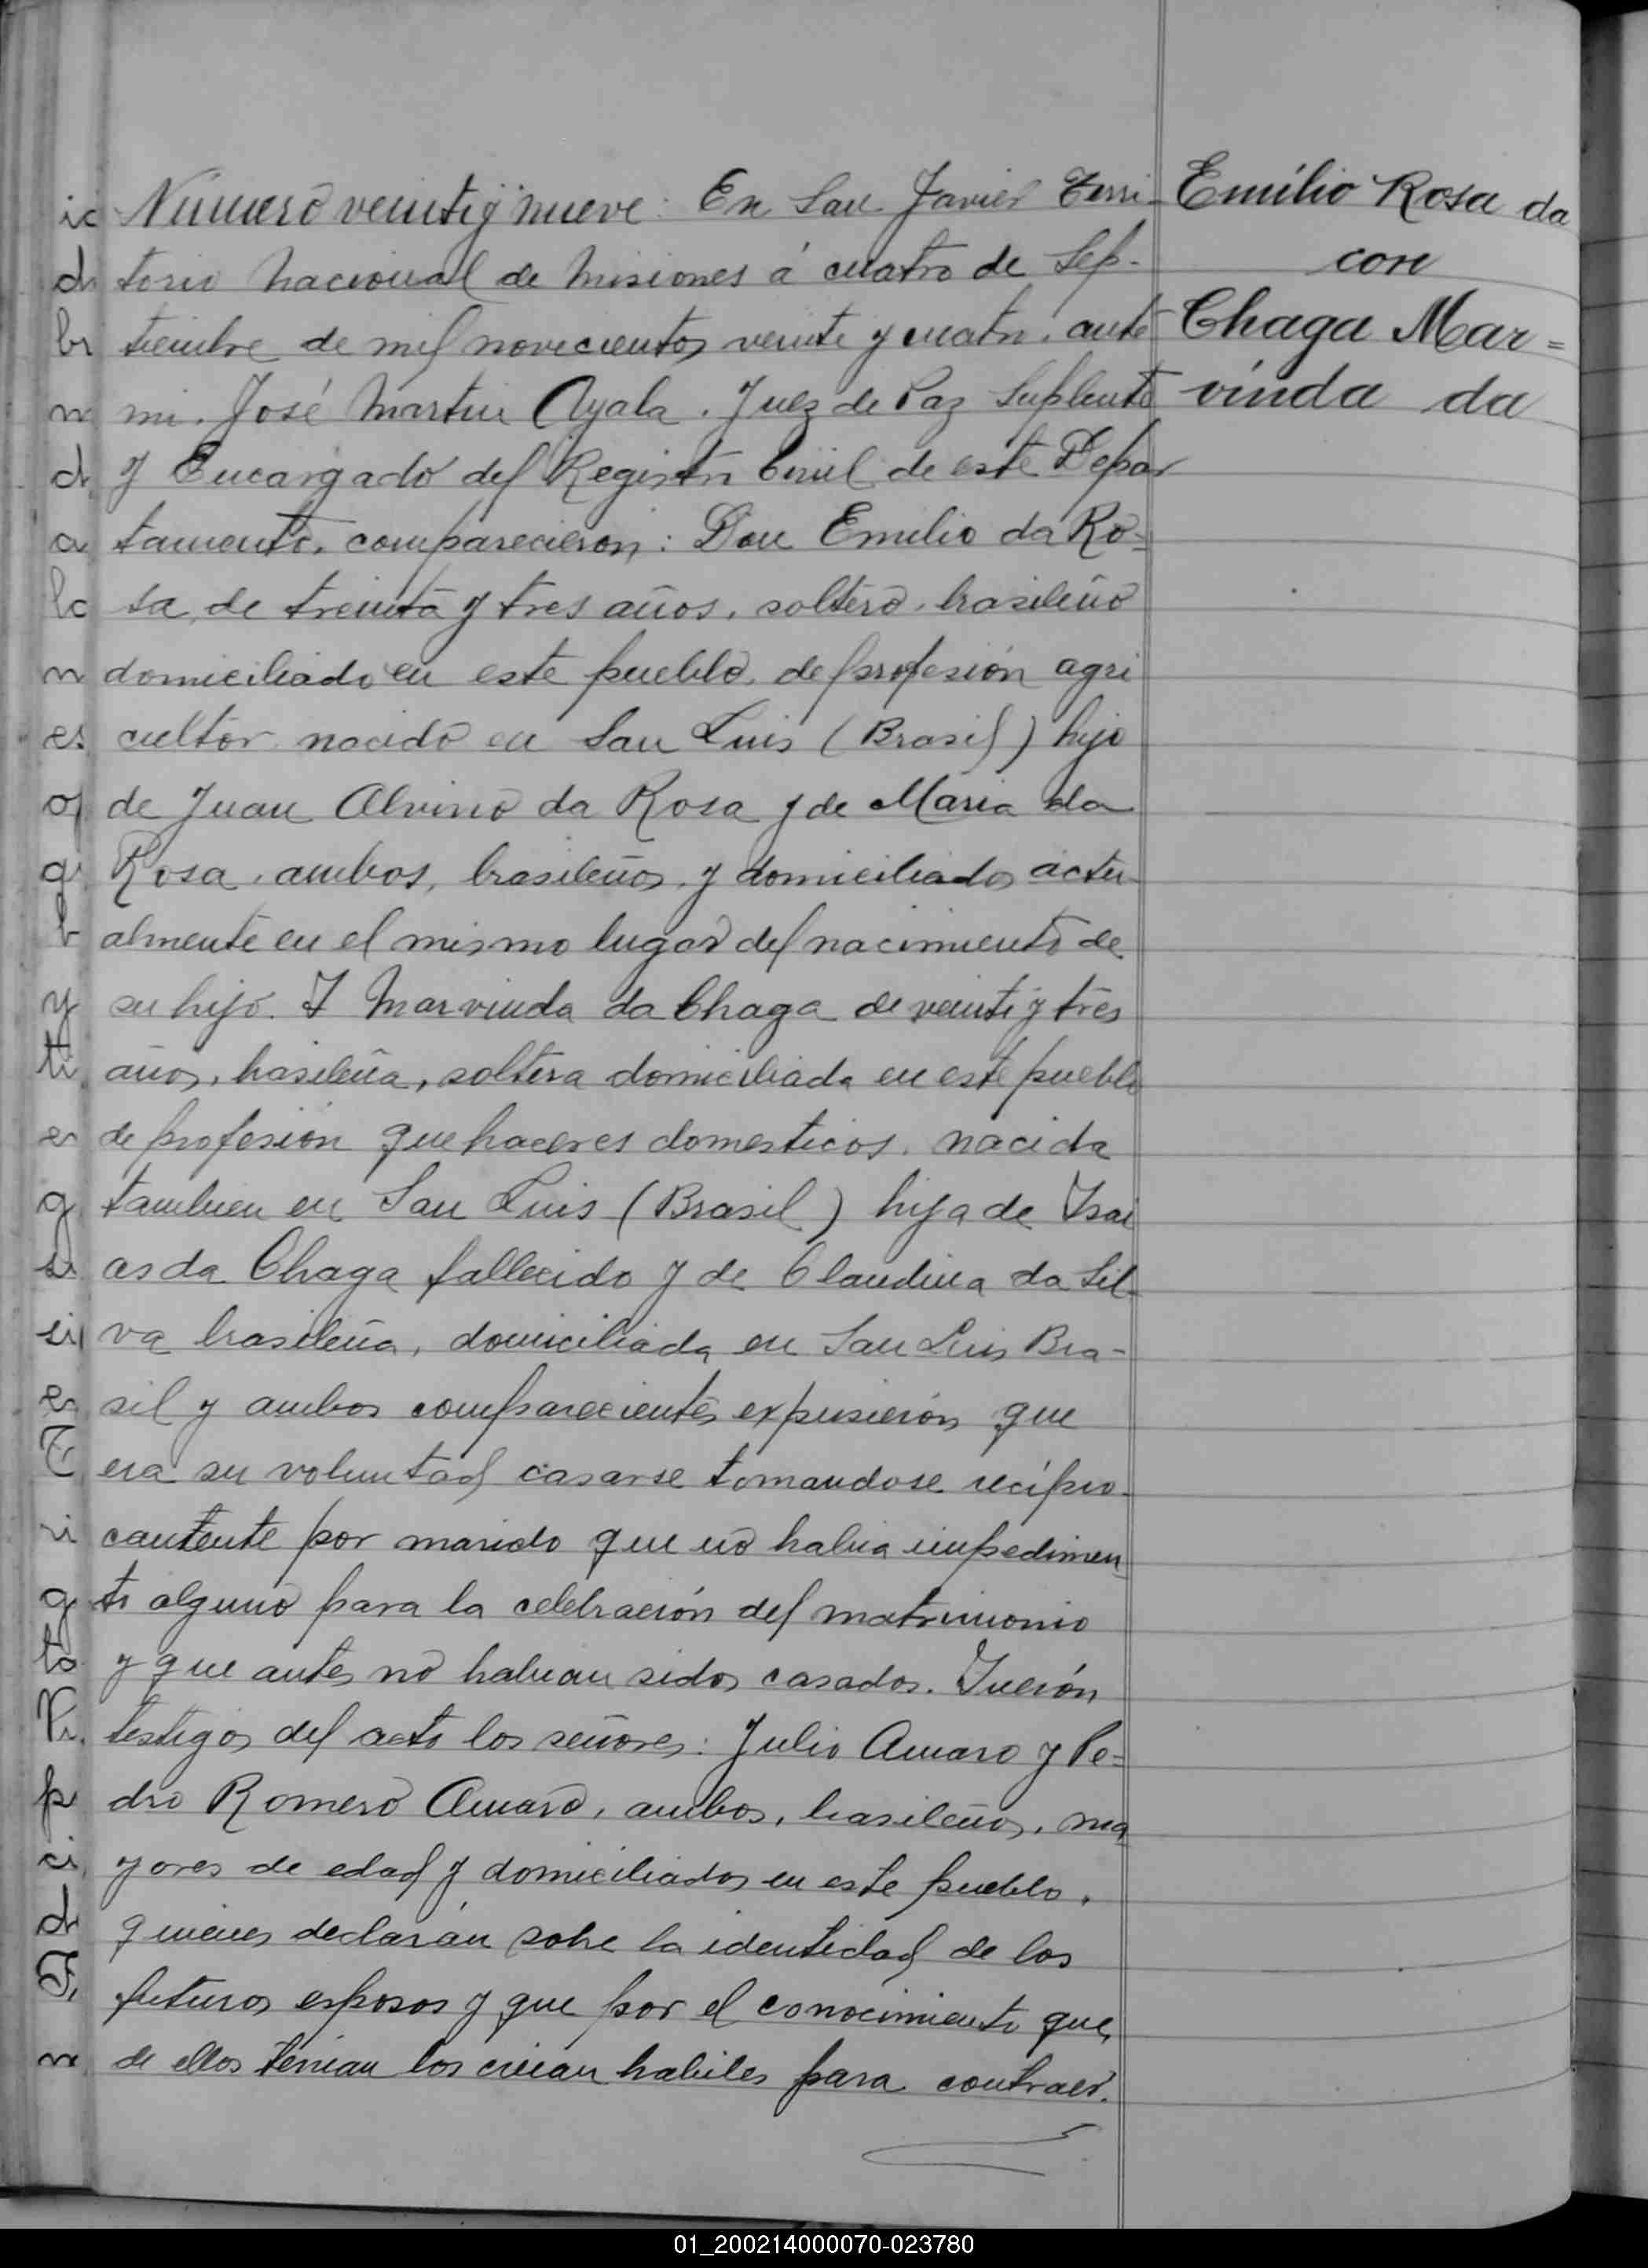 Número veinti y nueve: En San Javier Terri-
torio Nacional de Misiones á cuatro de Sep-
tiembre de mil novecientos veinte y cuatro, ante
mi. José Martin Ayala. Juez de Paz Suplente
y Encargado del Registro Civil de este Depar
tamento, comparecieron: Don Emilio da Ro-
sa, de treinta y tres años, soltero, brasileño
domiciliado en este pueblo, de profesión agri
cultor nacido en San Luis (Brasil) hijo
de Juan Alvino da Rosa y de Maria da
Rosa, ambos, brasileños, y domiciliados actu-
almente en el mismo lugar del nacimiento de
su hijo. Y Marvinda da Chaga de veinti y tres
años, brasileña, soltera domiciliada en este pueblo
de profesión quehaceres domesticos, nacida
tambien en San Luis (Brasil) hija de Isai
as da Chaga fallecido y de Claudina da Sil-
va brasileña, domiciliada en San Luis Bra-
sil y ambos comparecientes expusieron que
era su voluntad casarse tomandose recipro-
camtente por marido que no habia impedimen
to alguno para la celebración del matrimonio
y que antes no habian sidos casados. Fueron
testigos del acto los señores: Julio Amaro y Pe=
dro Romero Amaro, ambos, brasileños, ma
yores de edad y domiciliados en este pueblo,
quienes declarán sobre la identidad de los
futuros esposos y que por el conocimiento que,
de ellos tenian los creian habiles para contraer.
Emilio Rosa da
con
Chaga Mar=
vinda da
01_200214000070-023780